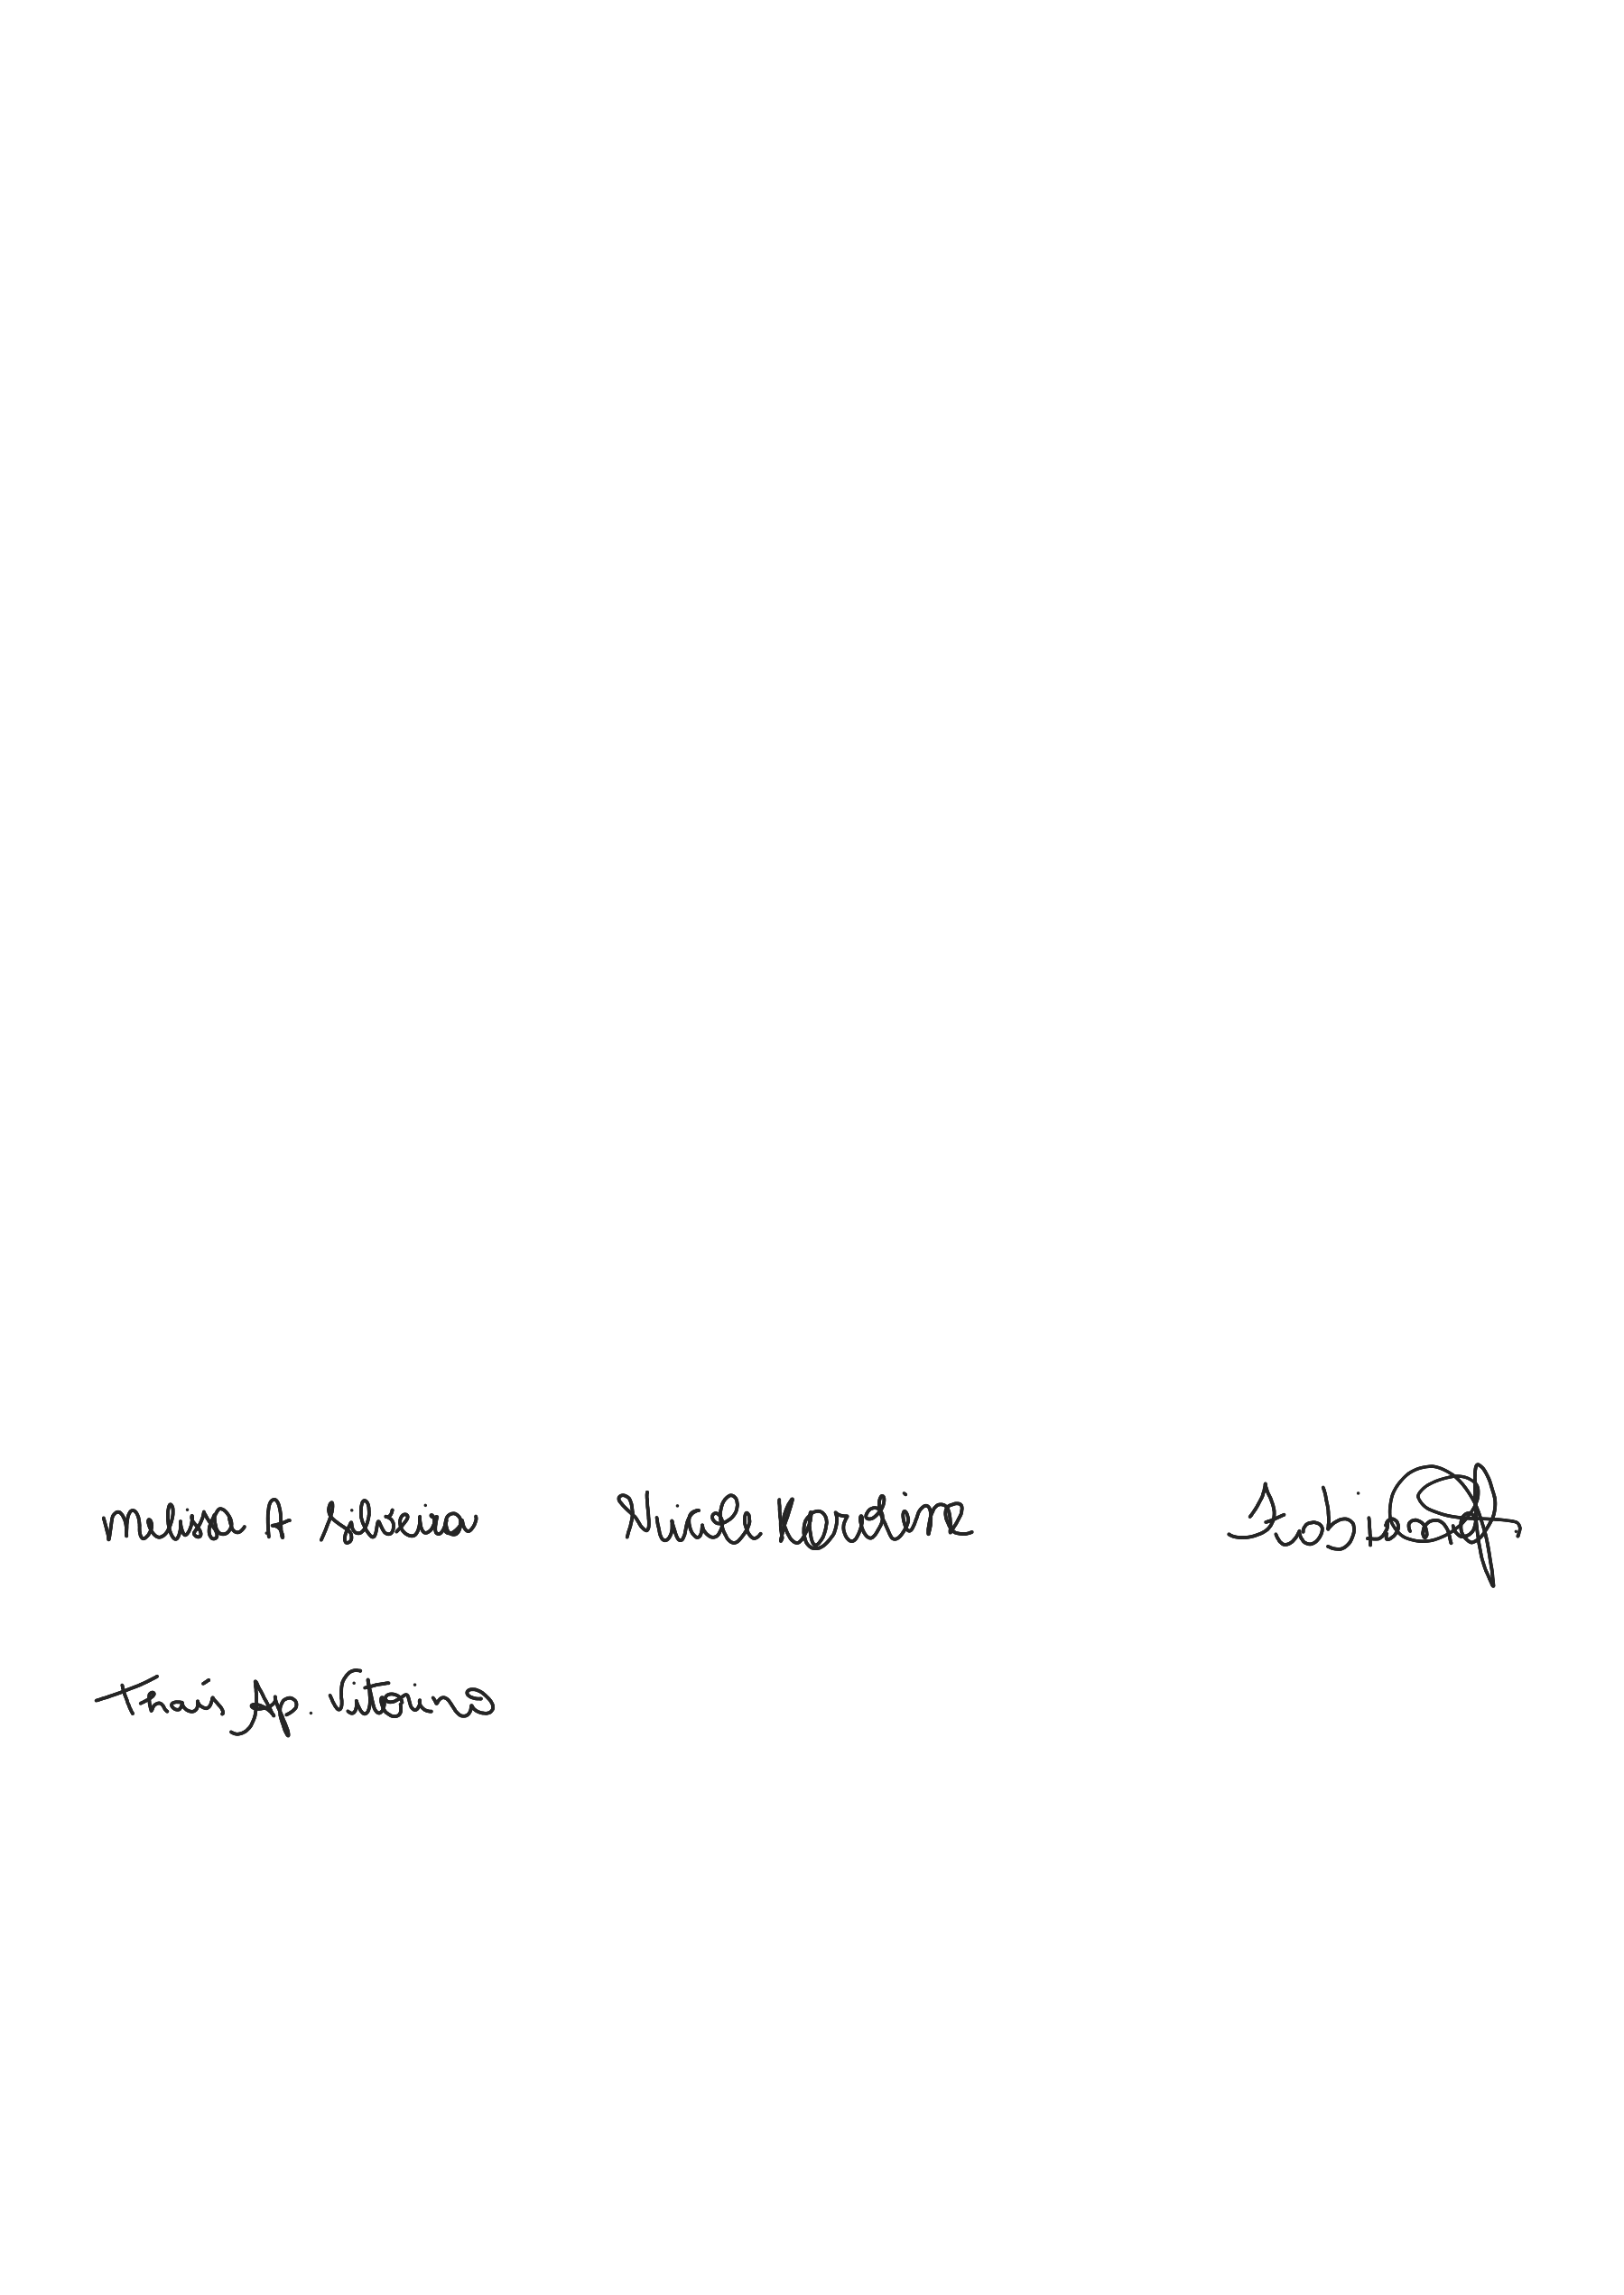 Melissa A Silveira Nicole Kardin
Thais Ap. Vitorino